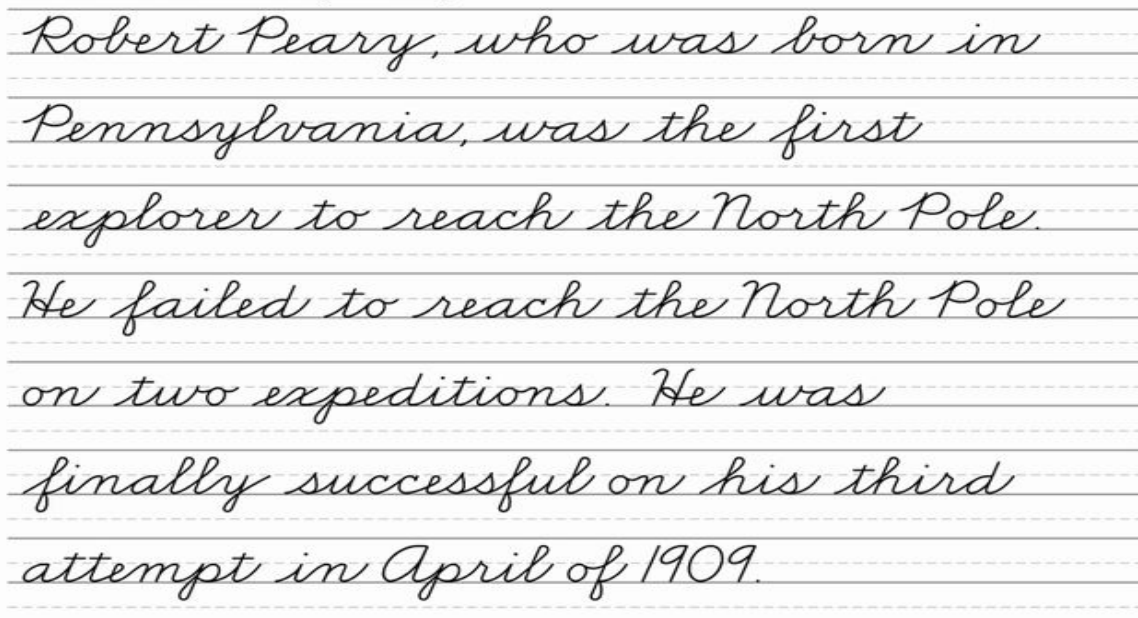 Robert Peary, who was born in
Pennsylvania, was the first
explorer to reach the North Pole.
He failed to reach the North Pole
on two expeditions. He was
finally successful on his third
attempt in April of 1909.